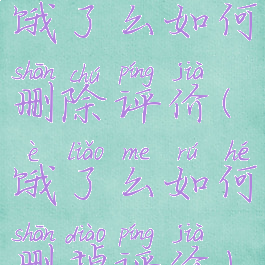 饿了么如何
shān chú píng jià
删除评价(
è liǎo me rú hé
饿了么如何
shān diào píng jià
删掉评价)